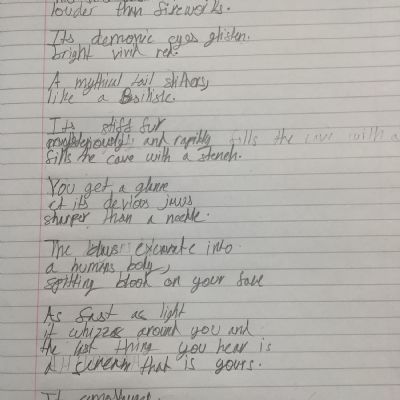 louder than fireworks.
Its demonic eyes glisten.
bright vivid red.
A mythical tail slithers,
like a Basilisk.
Its stiff fur
mysteriously and rapidly fills the cave with a
fills the cave with a stench.
You get a glance
at its devious jaws
sharper than a needle.
The claws excavate into
a humans body,
spitting blood on your face
As fast as light
it whizzes around you and
the last thing you hear is
a scream that is yours.
It